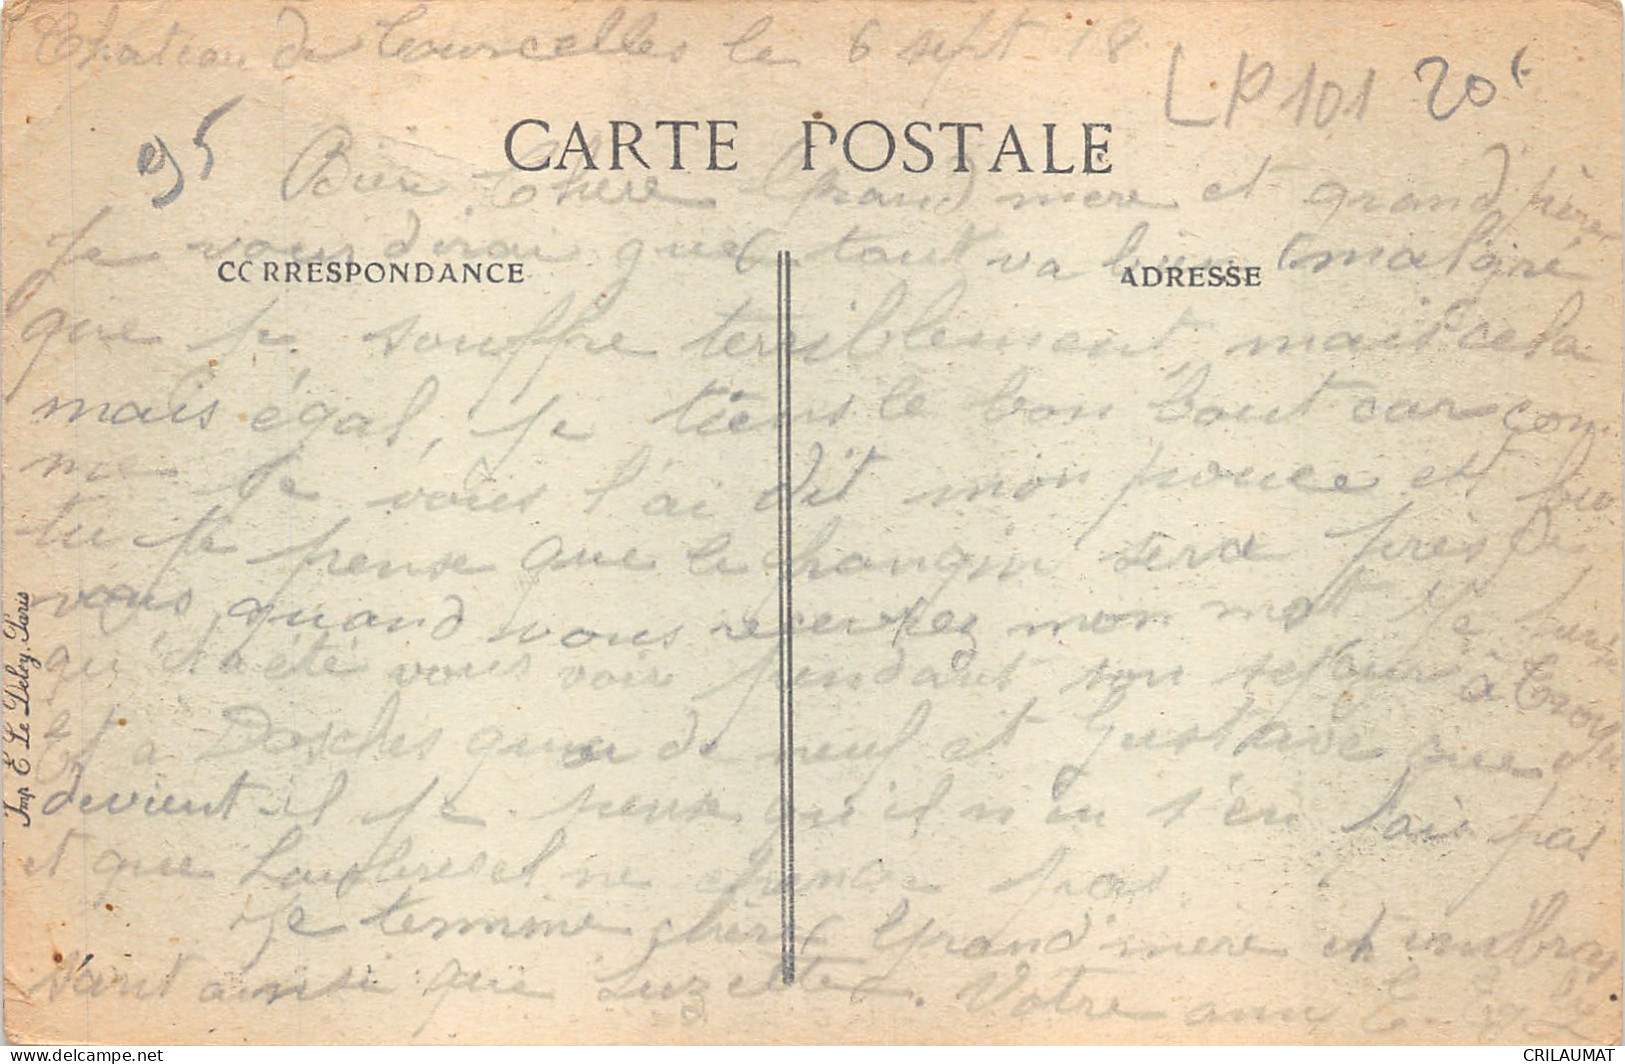 Château de Courcelles le 6 sept 18
LP 101 20f
95
CARTE POSTALE
Bien Chère Grand mère et grand père
Je vous dirai que tout va bien malgré
CORRESPONDANCE
ADRESSE
que je souffre terriblement mais cela
mais égal, je tiens le bon bout car com-
me je vous l'ai dit mon pouce est fou
tu je pense que le changin sera près de
vous quand vous recevrez mon mot
qu'il a été vous voir pendant son sejour à Troyes
Et à Dosches quoi de neuf et Gustave que
devient-il je pense qu'il n'en s'en fait pas
et que ne change pas
Je termine chère Grand'mère en embras
sant ainsi que Luzette. Votre ami
Imp. E. Le Deley, Paris
CRILAUMAT